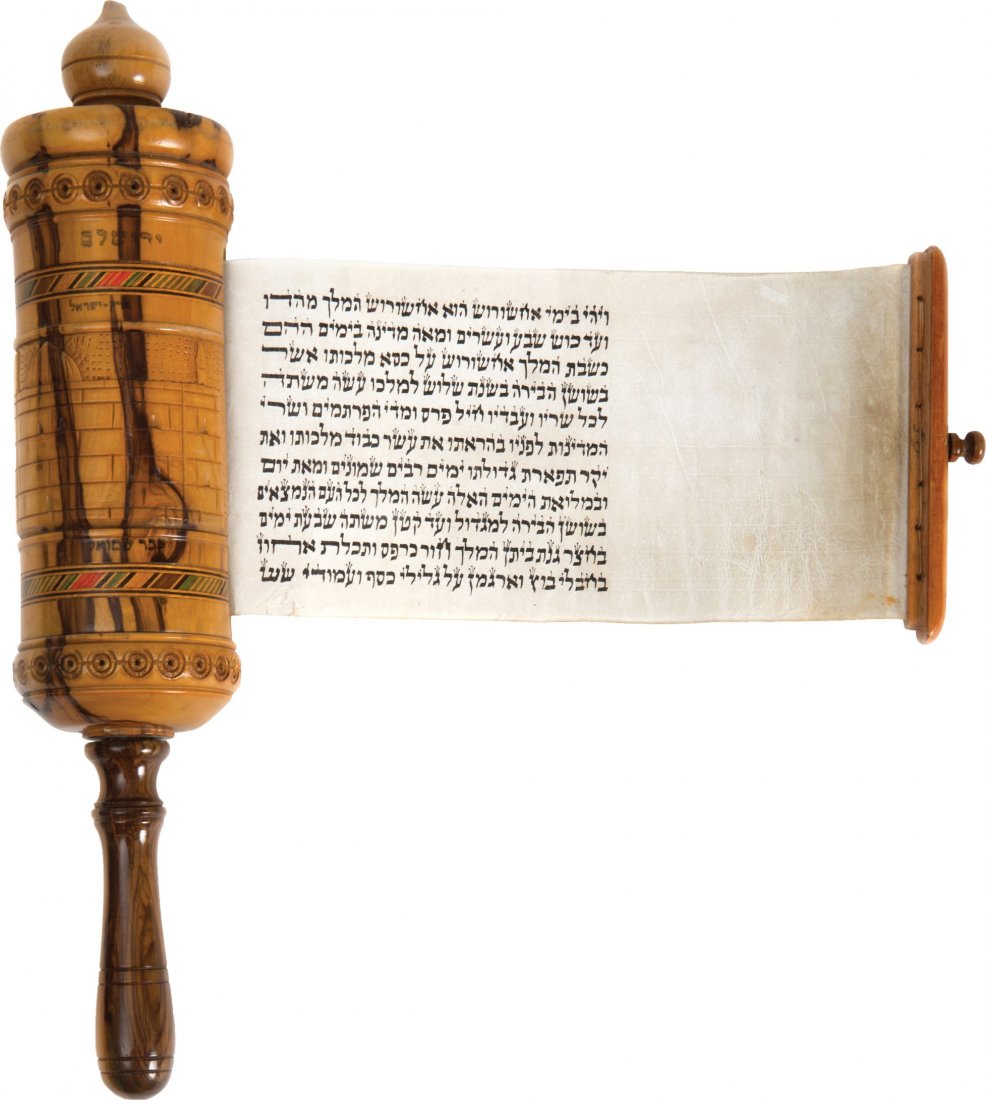 ירושלם
ארץ-ישראל
קבר שמואל
ויהי בימי אחשורוש הוא אחשורוש המלך מהדו
ועד כוש שבע ועשרים ומאה מדינה בימים ההם
כשבת המלך אחשורוש על כסא מלכותו אשר
בשושן הבירה בשנת שלוש למלכו עשה משתה
לכל שריו ועבדיו חיל פרס ומדי הפרתמים ושרי
המדינות לפניו בהראתו את עשר כבוד מלכותו ואת
יקר תפארת גדולתו ימים רבים שמונים ומאת יום
ובמלואת הימים האלה עשה המלך לכל העם הנמצאים
בשושן הבירה למגדול ועד קטן משתה שבעת ימים
בחצר גנת ביתן המלך חור כרפס ותכלת אחוז
בחבלי בוץ וארגמן על גלילי כסף ועמודי שש